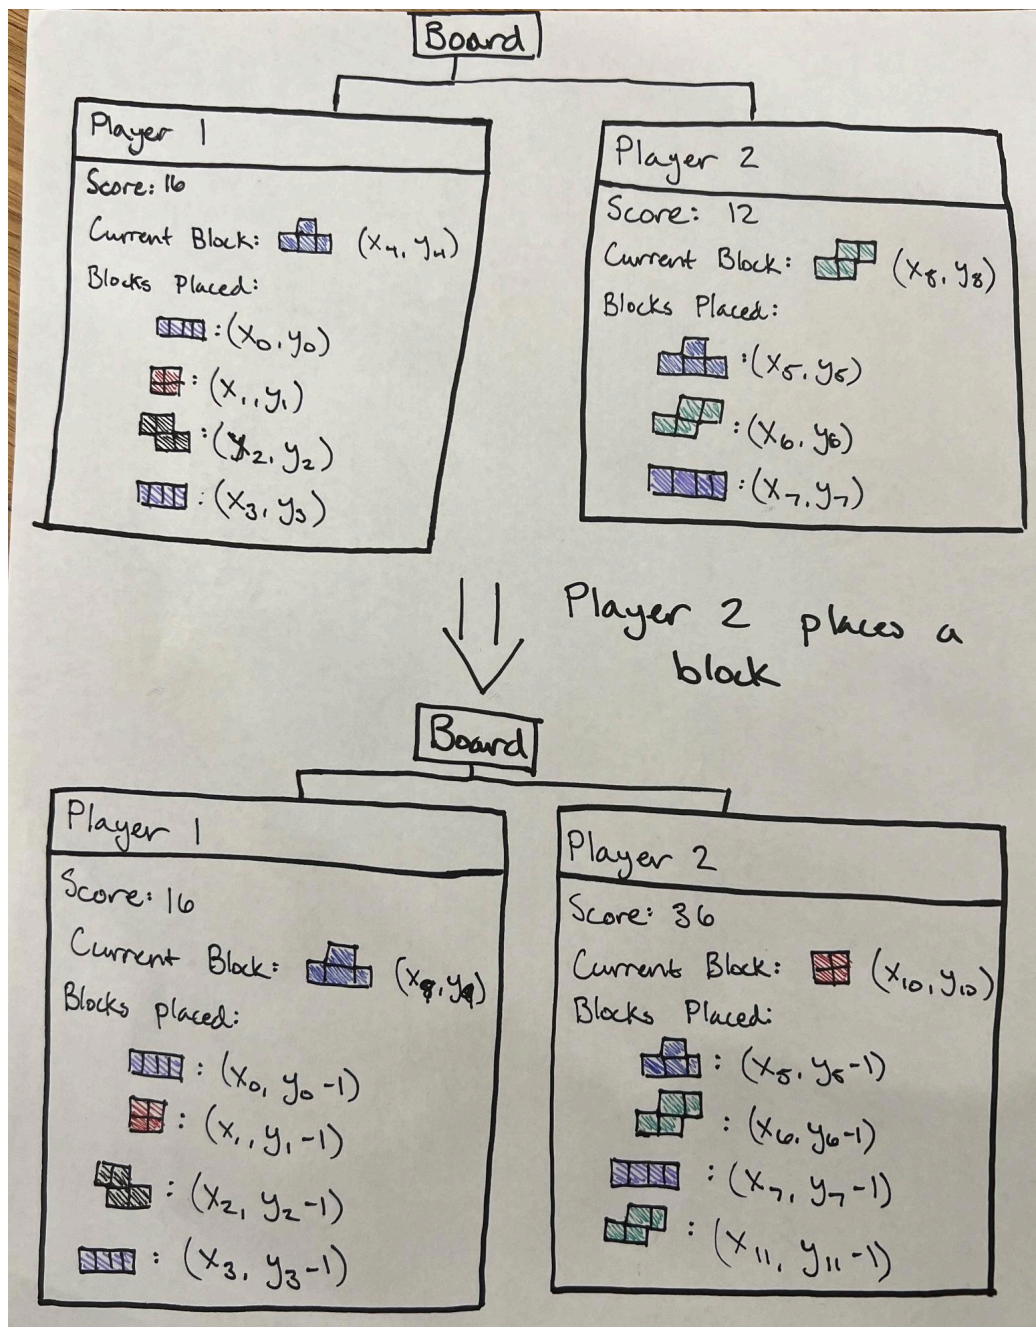 Board
Player 1
Score: 16
Current Block: (x₄, y₄)
Blocks Placed:
: (x₀, y₀)
: (x₁, y₁)
: (x₂, y₂)
: (x₃, y₃)
Player 2
Score: 12
Current Block: (x₈, y₈)
Blocks Placed:
: (x₅, y₅)
: (x₆, y₆)
: (x₇, y₇)
Player 2 places a
block
Board
Player 1
Score: 16
Current Block: (x₉, y₉)
Blocks placed:
: (x₀, y₀-1)
: (x₁, y₁-1)
: (x₂, y₂-1)
: (x₃, y₃-1)
Player 2
Score: 36
Current Block: (x₁₀, y₁₀)
Blocks Placed:
: (x₅, y₅-1)
: (x₆, y₆-1)
: (x₇, y₇-1)
: (x₁₁, y₁₁-1)